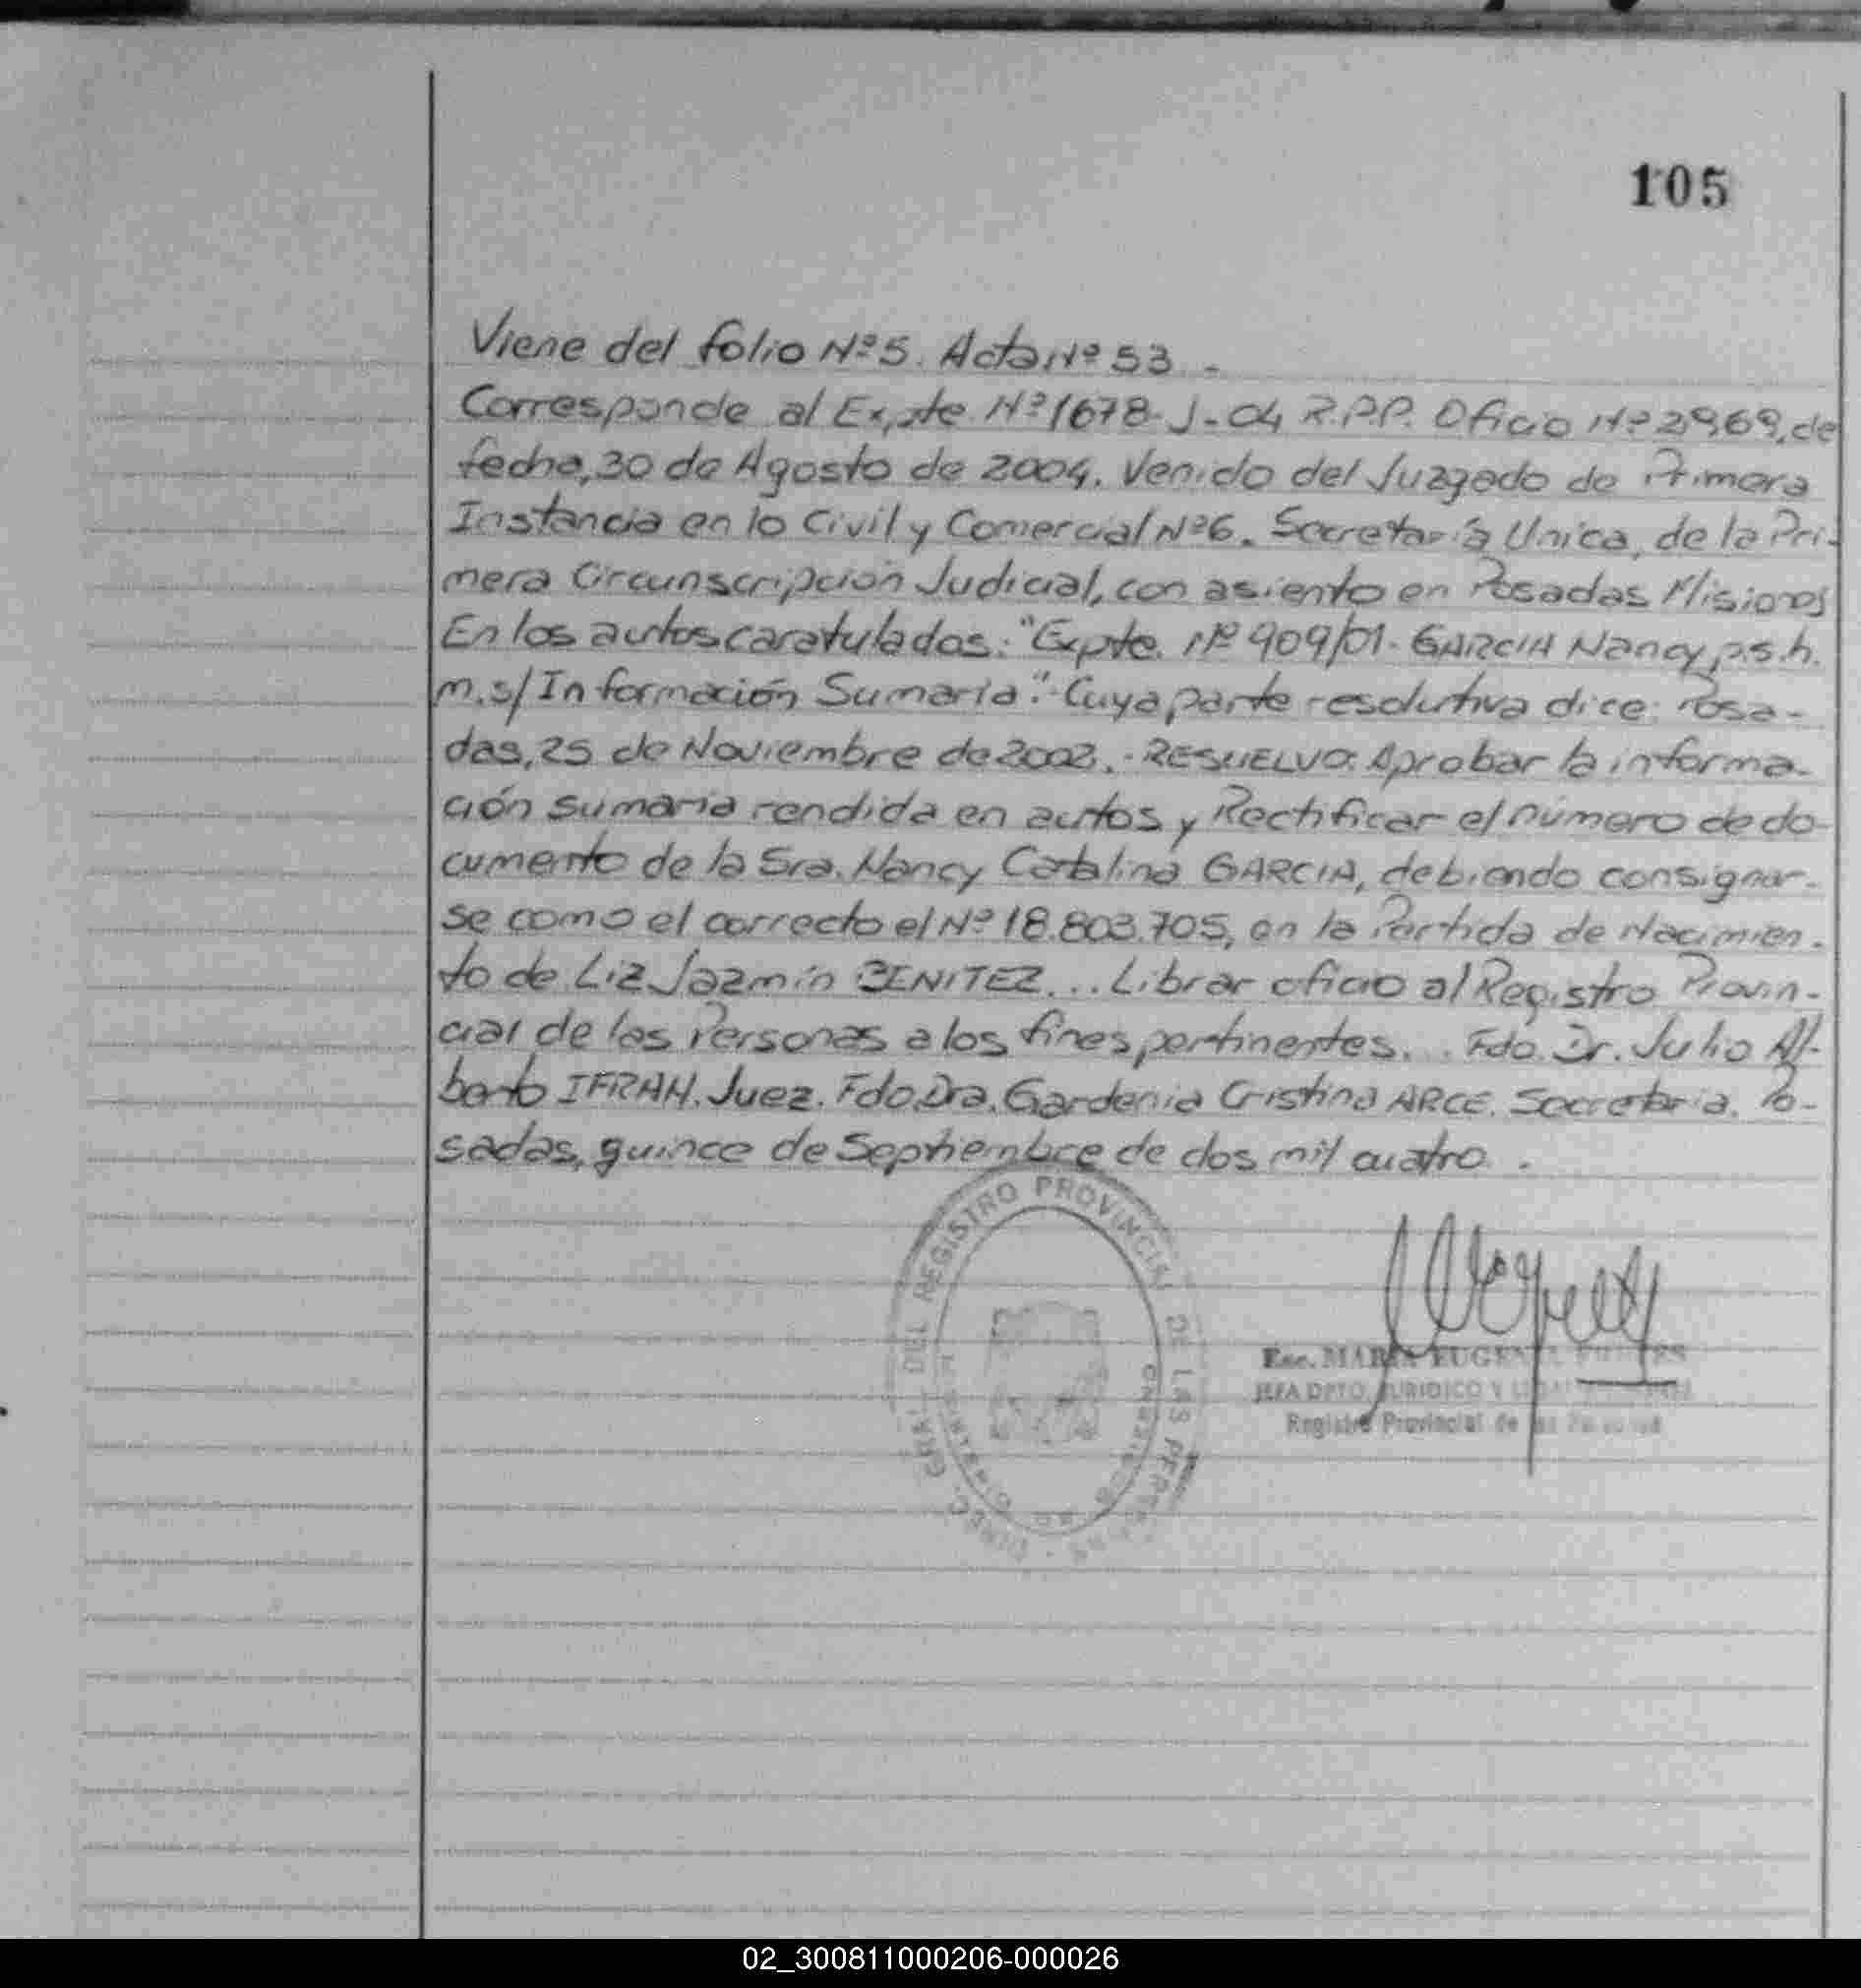 105
Viene del folio Nº5. Acta Nº 53.-
Corresponde al Expte. Nº1678-J-04 R.P.P. Oficio Nº 2969, de
fecha, 30 de Agosto de 2004. Venido del Juzgado de Primera
Instancia en lo Civil y Comercial Nº6. Secretaría Unica, de la Pri-
mera Circunscripción Judicial, con asiento en Posadas Misiones
En los autos caratulados: "Expte. Nº 909/01- GARCIA Nancy p.s.h.
m.s/ Información Sumaria".- Cuya parte resolutiva dice: Posa-
das, 25 de Noviembre de 2002.- RESUELVO: Aprobar la informa-
ción sumaria rendida en autos y Rectificar el número de do-
cumento de la Sra. Nancy Catalina GARCIA, debiendo consignar-
se como el correcto el Nº 18.803.705, en la Partida de Nacimien-
to de Liz Jazmín BENITEZ... Librar oficio al Registro Provin-
cial de las Personas a los fines pertinentes... Fdo. Dr. Julio Al-
berto IFRAN. Juez. Fdo Dra. Gardenia Cristina ARCE. Secretaria. Po-
sadas, quince de Septiembre de dos mil cuatro.
DIREC. GRAL. DEL REGISTRO PROVINCIAL DE LAS PERSONAS
Esc. MARIA EUGENIA
JEFA DPTO. JURIDICO Y
Registro Provincial de las Personas
02_300811000206-000026